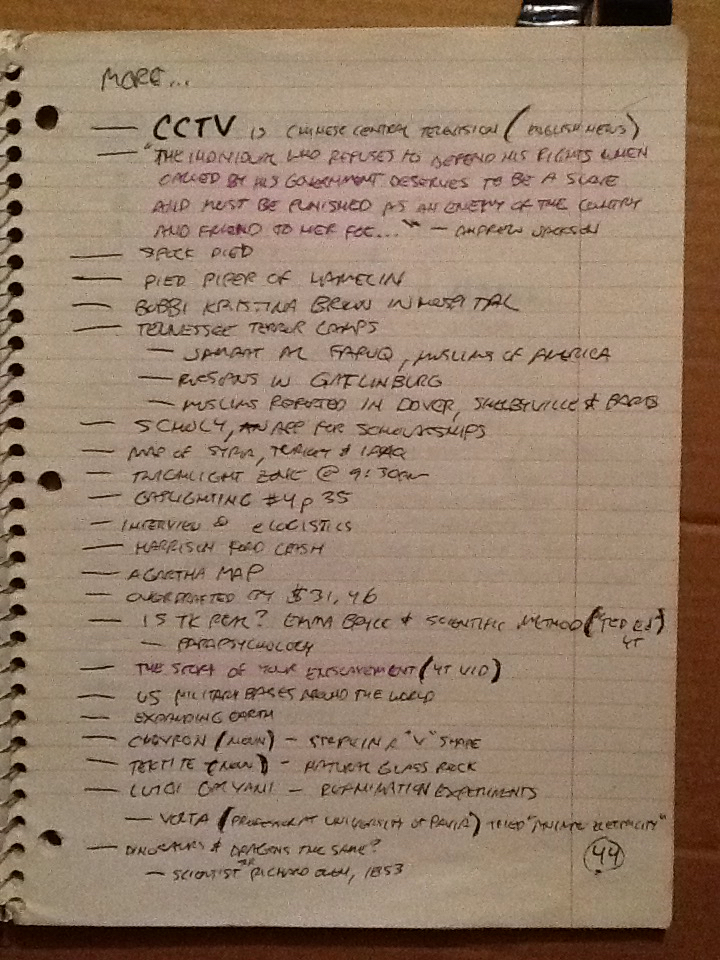 MORE...
— CCTV IS CHINESE CENTRAL TELEVISION (ENGLISH NEWS)
— "THE INDIVIDUAL WHO REFUSES TO DEFEND HIS RIGHTS WHEN
CALLED BY HIS GOVERNMENT DESERVES TO BE A SLAVE
AND MUST BE PUNISHED AS AN ENEMY OF THE COUNTRY
AND FRIEND TO HER FOE..." — ANDREW JACKSON
— SPOCK DIED
— PIED PIPER OF HAMELIN
— BOBBI KRISTINA BROWN IN HOSPITAL
— TENNESSEE TERROR CAMPS
— JAMAAT AL FARUQ, MUSLIMS OF AMERICA
— RUSSIANS IN GATLINBURG
— MUSLIMS REPORTED IN DOVER, SHELBYVILLE &
— SCHOLY, AN APP FOR SCHOLARSHIPS
— MAP OF SYRIA, TURKEY & IRAQ
— TWIGHLIGHT ZONE @ 9:30am
— GASLIGHTING #4 p 35
— INTERVIEW @ eLOGISTICS
— HARRISON FORD CRASH
— AGARTHA MAP
— OVERDRAFTED BY $31.46
— IS TK REAL? EMMA BRYCE & SCIENTIFIC METHOD ("TED Ed")
YT
— PARAPSYCHOLOGY
— THE STORY OF YOUR ENSLAVEMENT (YT VID)
— US MILITARY BASES AROUND THE WORLD
— EXPANDING EARTH
— CHEVRON (NOUN) — STRIPE IN A "V" SHAPE
— TEKTITE (NOUN) — NATURAL GLASS ROCK
— LUIGI GALVANI — REANIMATION EXPERIMENTS
— VOLTA (PROFESSOR AT UNIVERSITY OF PAVIA) TRIED "ANIMAL ELECTRICITY"
— DINOSAURS & DRAGONS THE SAME?
— SCIENTIST SIR RICHARD OWEN, 1853
44